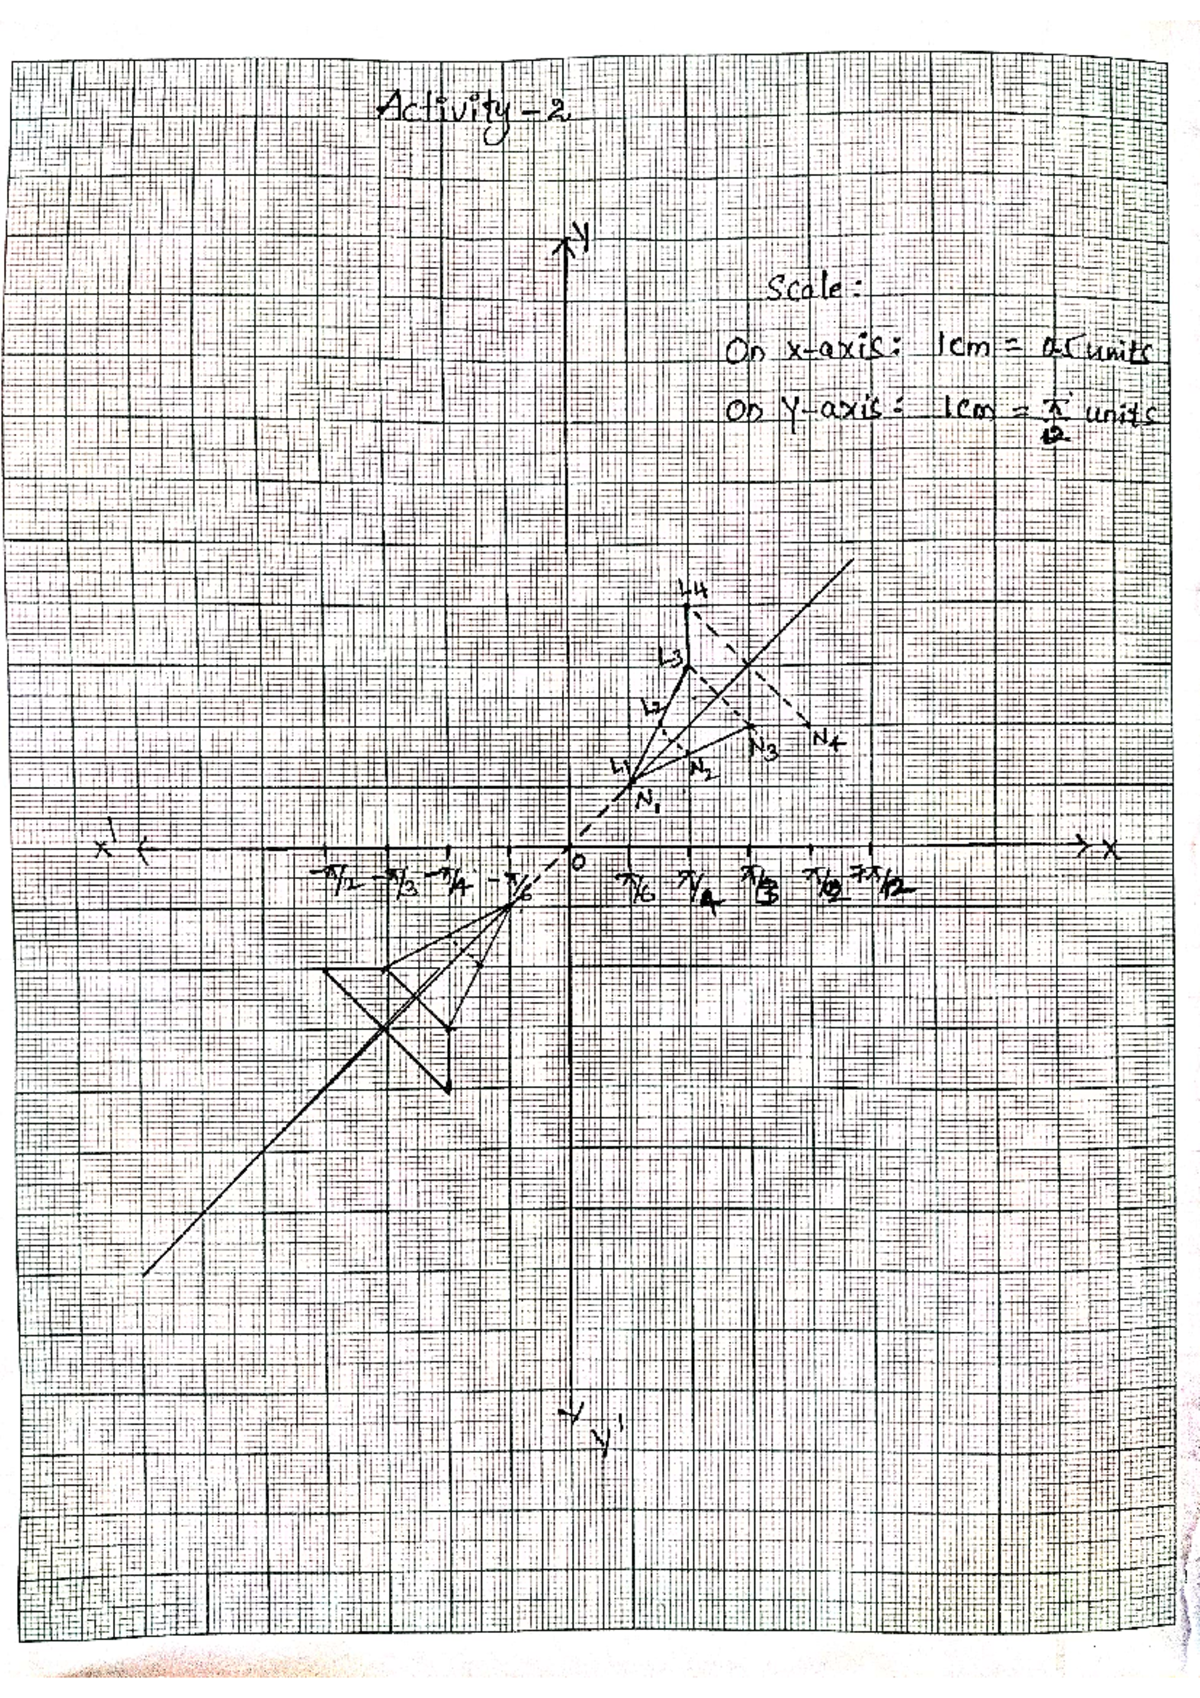 Activity - 2
Y
Scale :
On x-axis : 1cm = 0.5 units
On Y-axis : 1cm = π/12 units
L4
L3
L2
N4
N3
L1
N2
N1
X'
X
O
-π/2 -π/3 -π/4 -π/6 π/6 π/4 π/3 π/2 7π/12
Y'